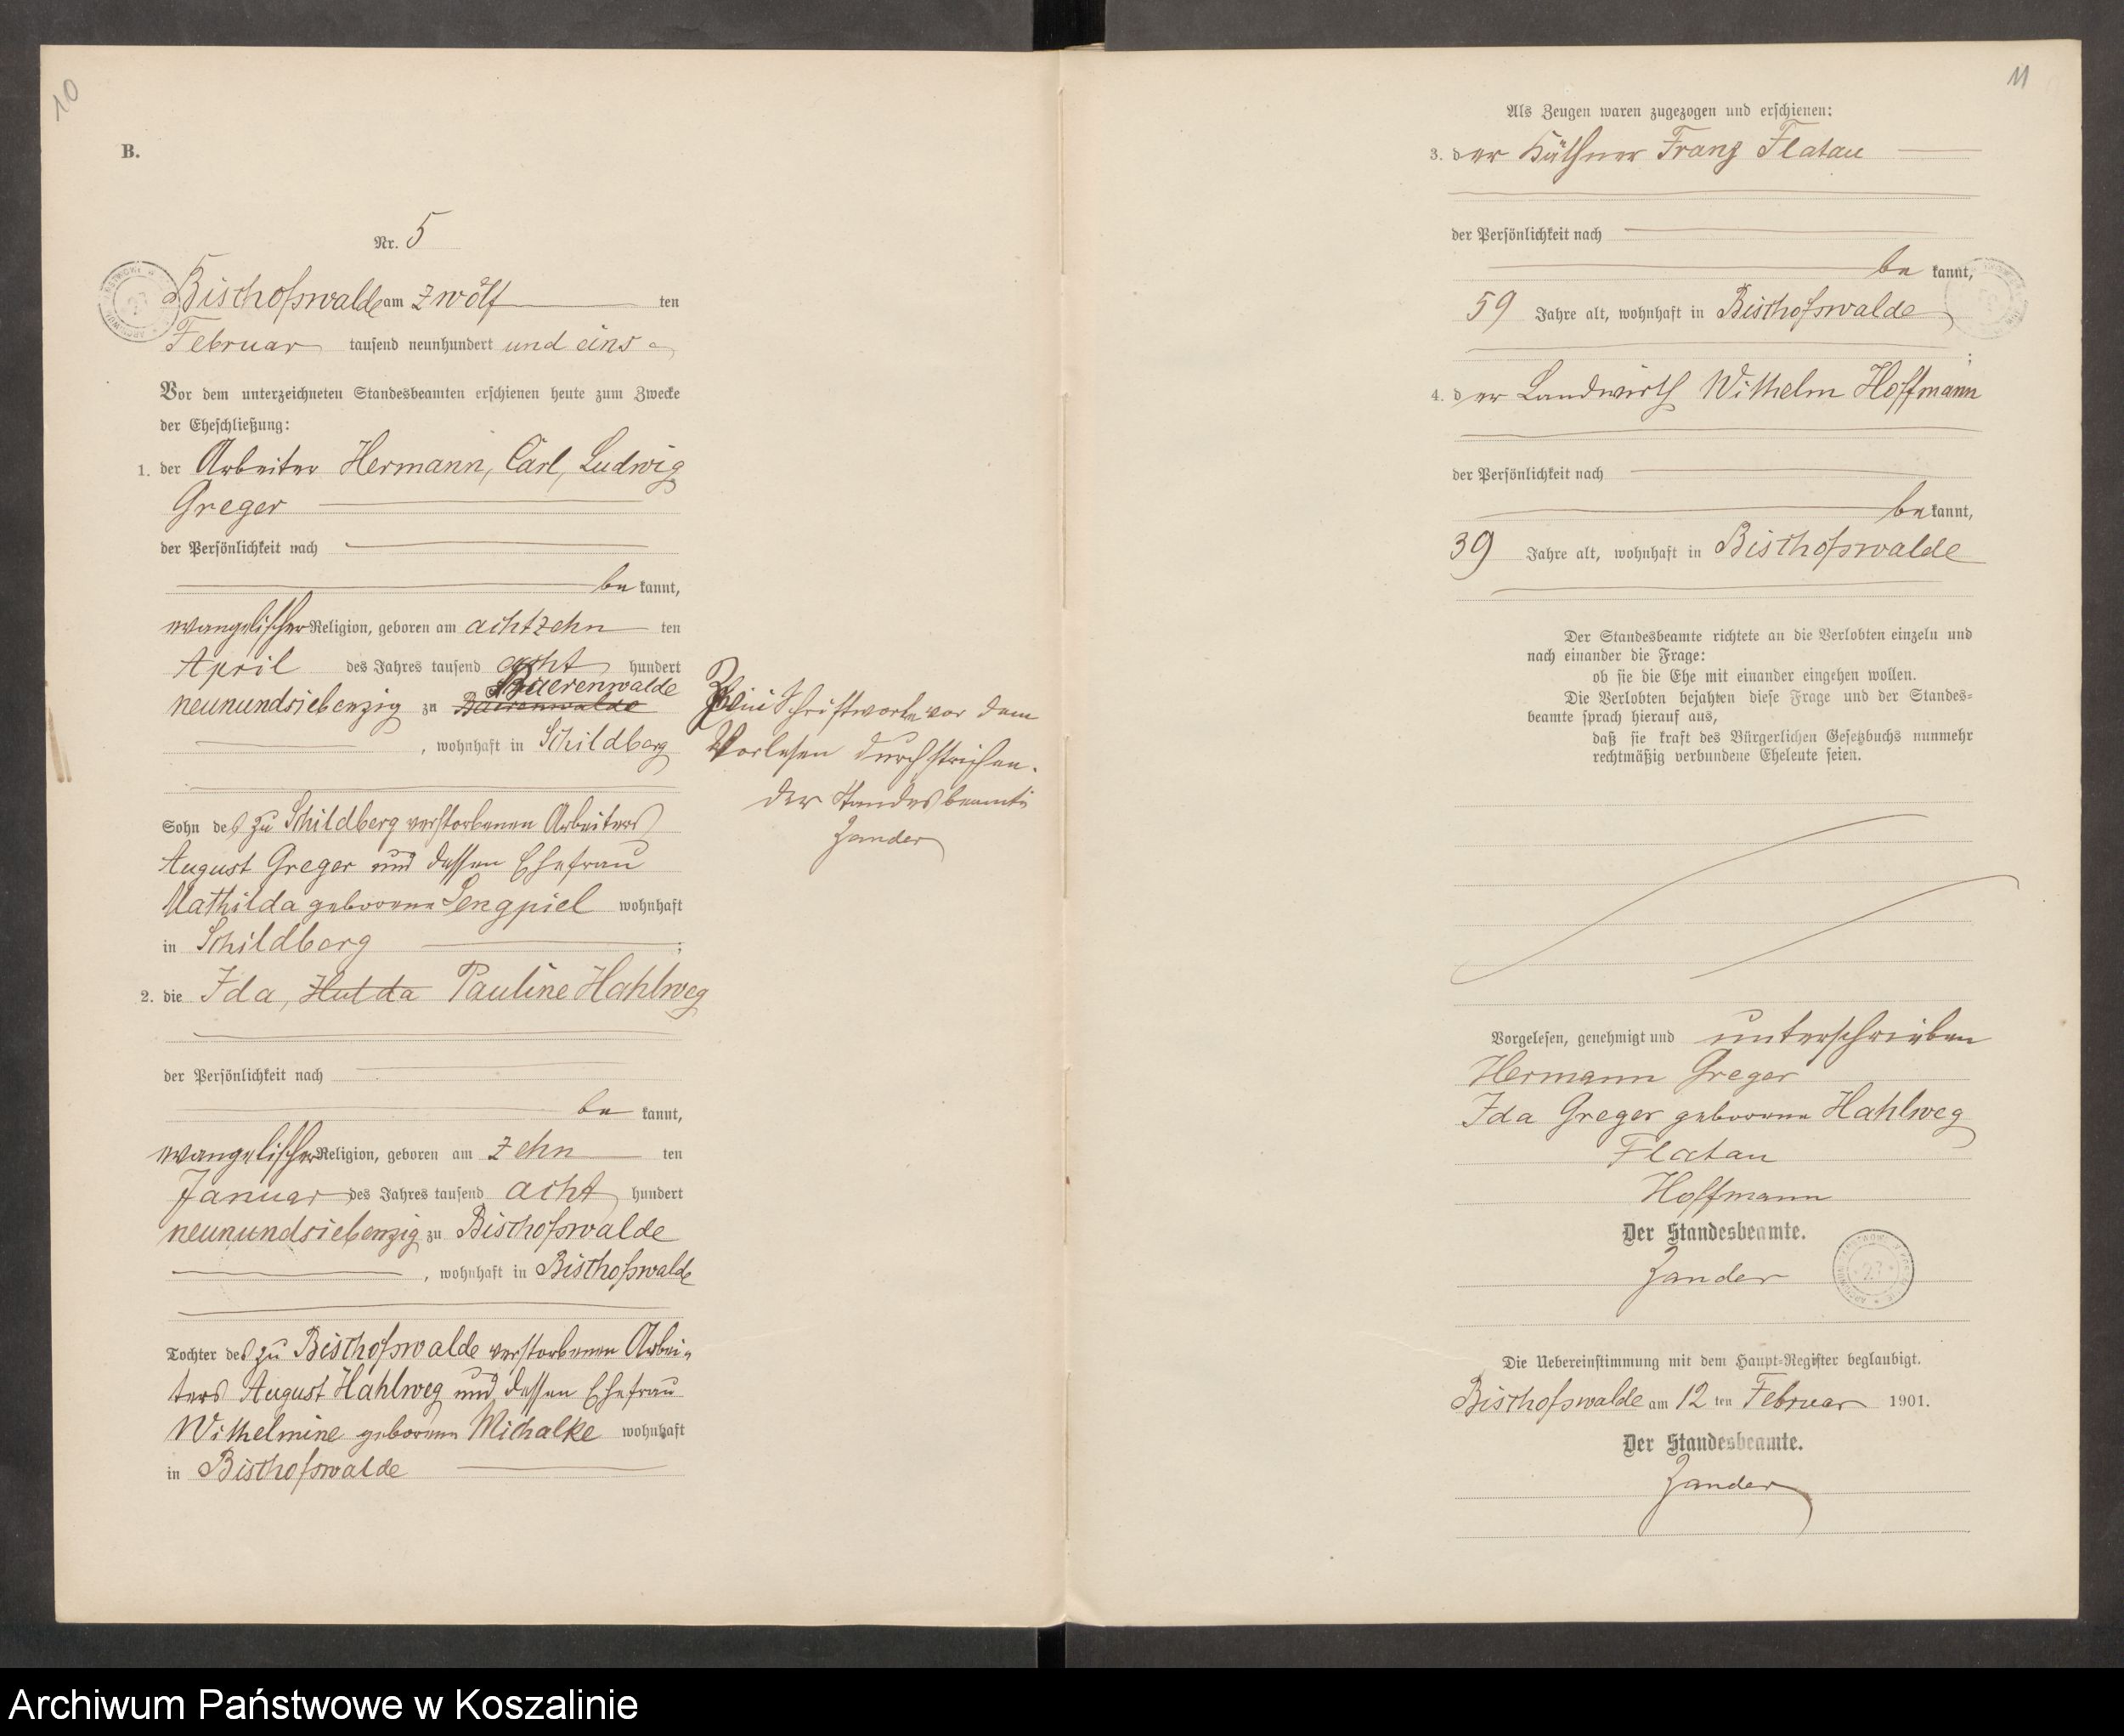 10
B.
Nr. 5
Bischofswalde am zwölf ten
Februar tausend neunhundert und eins
Vor dem unterzeichneten Standesbeamten erschienen heute zum Zwecke
der Eheschließung:
1. der Arbeiter Hermann, Carl, Ludwig
Greger
der Persönlichkeit nach
be kannt,
evangelischer Religion, geboren am achtzehn ten
April des Jahres tausend acht hundert
Baerenwalde
neunundsiebenzig zu Baerenwalde
, wohnhaft in Schildberg
Sohn des zu Schildberg verstorbenen Arbeiters
August Greger und dessen Ehefrau
Mathilda geborene Sengpiel wohnhaft
in Schildberg ;
2. die Ida, Hulda Pauline Hahlweg
der Persönlichkeit nach
be kannt,
evangelischer Religion, geboren am zehn ten
Januar des Jahres tausend acht hundert
neunundsiebenzig zu Bischofswalde
, wohnhaft in Bischofswalde
Tochter des zu Bischofswalde verstorbenen Arbei-
ters August Hahlweg und dessen Ehefrau
Wilhelmine geborene Michalke wohnhaft
in Bischofswalde
Schriftworte vor dem
Vorlesen durchstrichen.
Der Standesbeamte
Zander
11
Als Zeugen waren zugezogen und erschienen:
3. der Käthner Franz Flatau
der Persönlichkeit nach
be kannt,
59 Jahre alt, wohnhaft in Bischofswalde
;
4. der Landwirth Wilhelm Hoffmann
der Persönlichkeit nach
be kannt,
39 Jahre alt, wohnhaft in Bischofswalde
Der Standesbeamte richtete an die Verlobten einzeln und
nach einander die Frage:
ob sie die Ehe mit einander eingehen wollen.
Die Verlobten bejahten diese Frage und der Standes-
beamte sprach hierauf aus,
daß sie kraft des Bürgerlichen Gesetzbuchs nunmehr
rechtmäßig verbundene Eheleute seien.
Vorgelesen, genehmigt und unterschrieben
Hermann Greger
Ida Greger geborene Hahlweg
Flatau
Hoffmann
Der Standesbeamte.
Zander
Die Uebereinstimmung mit dem Haupt-Register beglaubigt.
Bischofswalde am 12 ten Februar 1901.
Der Standesbeamte.
Zander
Archiwum Państwowe w Koszalinie